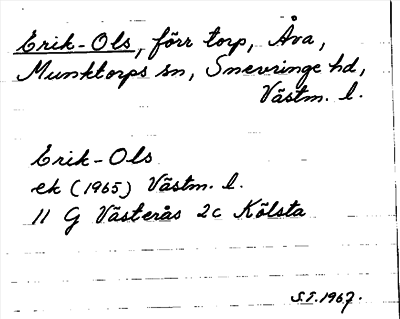 Erik-Ols, förr torp, Åva,
Munktorps sn, Snevringe hd,
Västm. l.
Erik-Ols
ek (1965) Västm. l.
11 G Västerås 2c Kölsta
S.I. 1967.